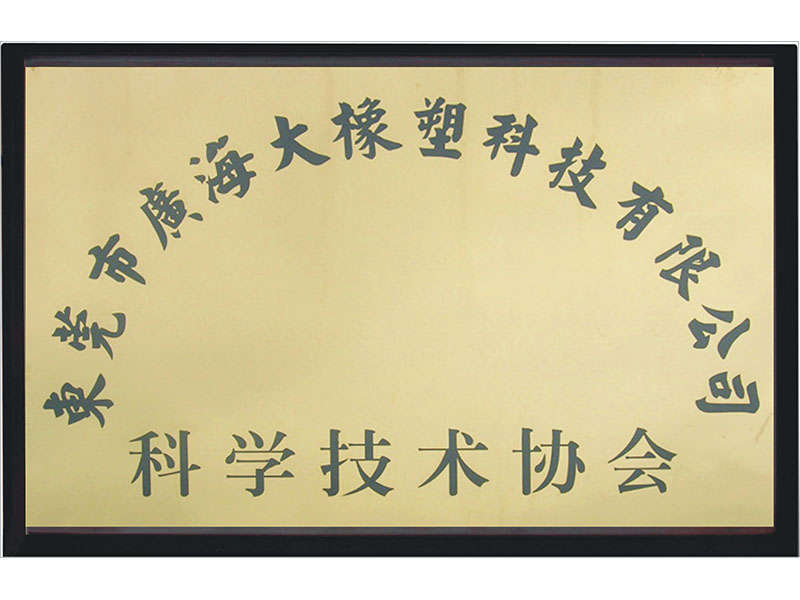 東莞市廣海大橡塑科技有限公司
科学技术协会